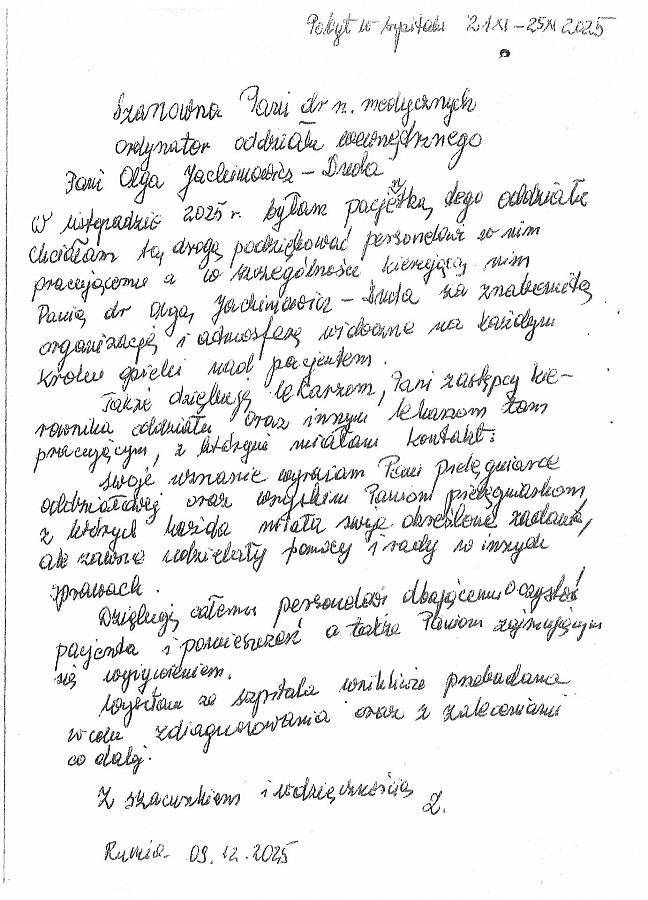 Pobyt w szpitalu 21XI – 25XI 2025
Szanowna Pani dr n. medycznych
ordynator oddziału wewnętrznego
Pani Olga Jachimowicz – Duda
W listopadzie 2025 r. byłam pacjętką tego oddziału
chciałam tą drogą podziękować personelowi w nim
pracującemu a w szczególności kierującej nim
Panią dr Olgą Jachimowicz – Duda za znakomitą
organizację i atmosferę widoczne na każdym
kroku opieki nad pacjentem.
Także dziękuję lekarzom, Pani zastępcy kie-
rownika oddziału oraz innym lekarzom tam
pracującym, z którymi miałam kontakt.
Swoje uznanie wyrażam Pani pielęgniarce
oddziałowej oraz wszystkim Paniom pielęgniarkom,
z których każda miała swoje określone zadania,
ale zawsze udzielały pomocy i rady w innych
sprawach.
Dziękuję całemu personelowi dbającemu o czystość
pacjenta i pomieszczeń a także Paniom zajmującym
się wyżywieniem.
Wyszłam ze szpitala wnikliwie przebadana
w celu zdiagnozowania oraz z zaleceniami
co dalej.
Z szacunkiem i wdzięcznością Z.
Rumia 09.12.2025